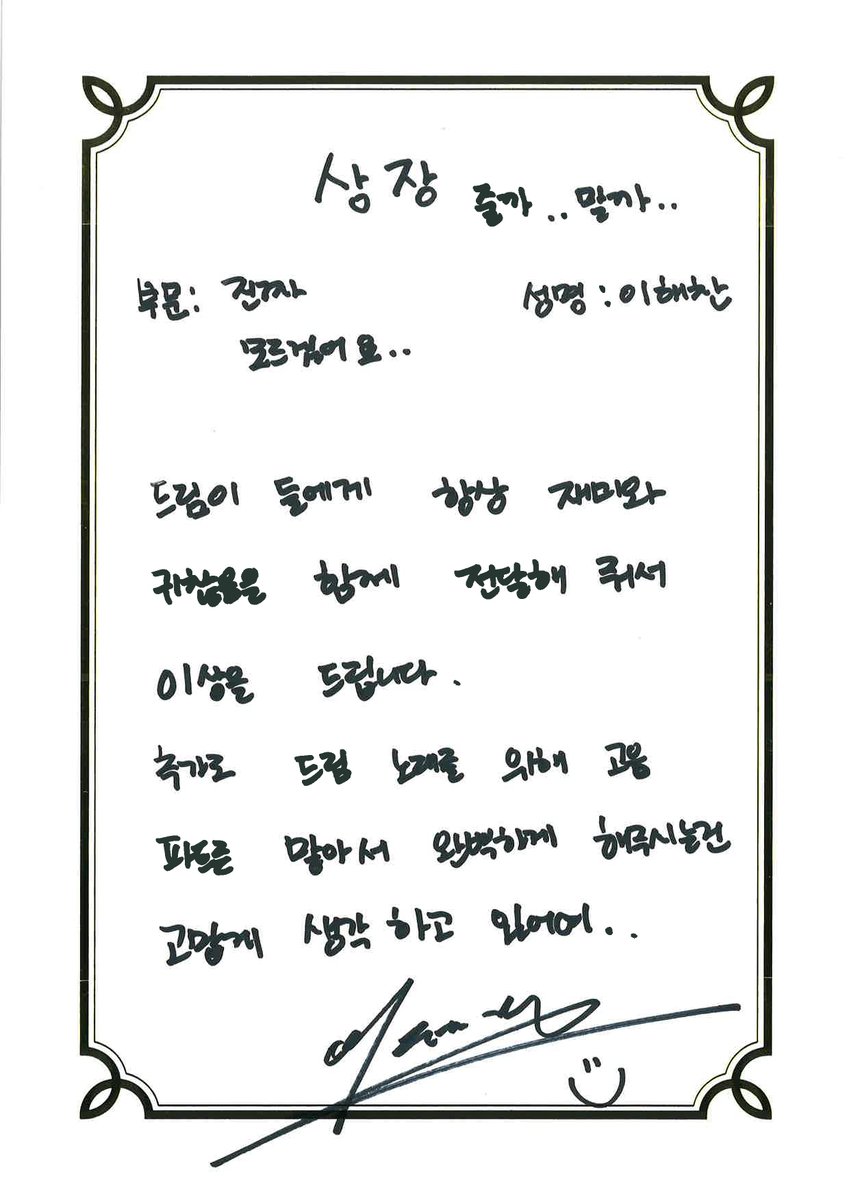 상장 줄까.. 말까..
부문: 진짜 성명: 이해찬
모르겠어요..
드림이 들에게 항상 재미와
귀찮음을 함께 전달해 줘서
이상을 드립니다.
추가로 드림 노래를 위해 고음
파트를 맡아서 완벽하게 해주시는건
고맙게 생각하고 있어여..